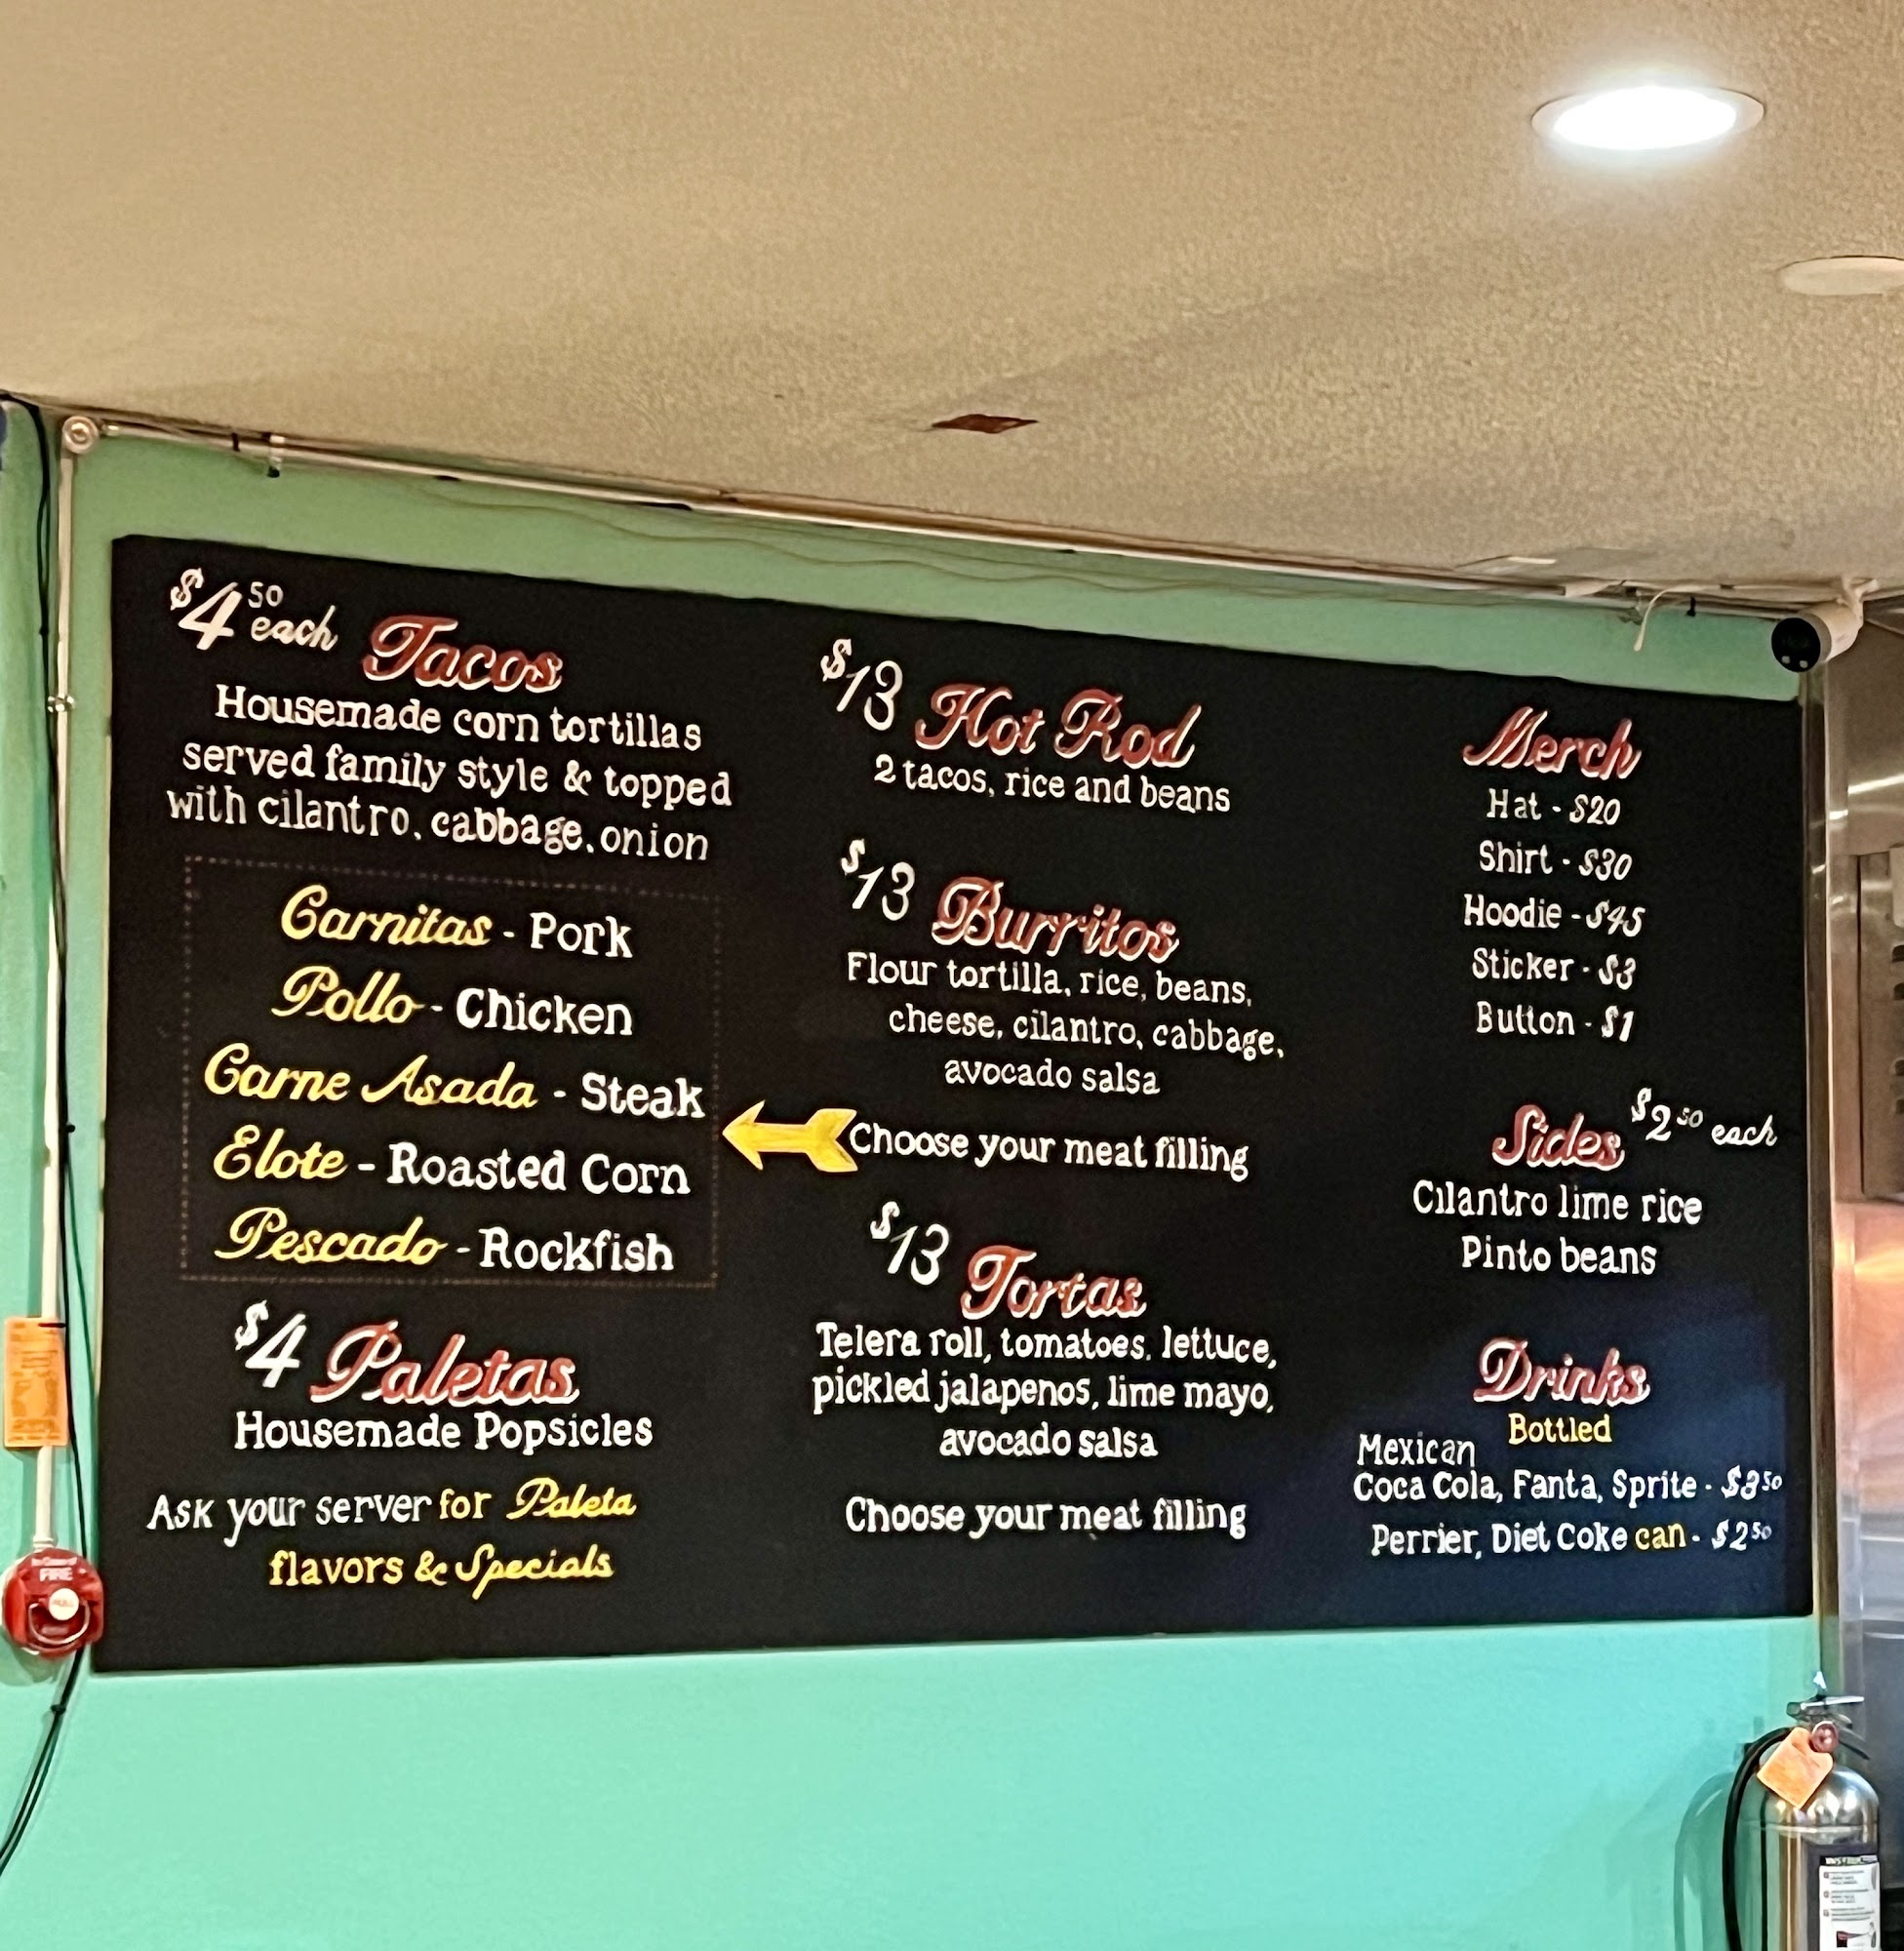 $4 50 each Tacos
Housemade corn tortillas
served family style & topped
with cilantro, cabbage, onion
Carnitas - Pork
Pollo - Chicken
Carne Asada - Steak
Elote - Roasted Corn
Pescado - Rockfish
$4 Paletas
Housemade Popsicles
Ask your server for Paleta
flavors & Specials
$13 Hot Rod
2 tacos, rice and beans
$13 Burritos
Flour tortilla, rice, beans,
cheese, cilantro, cabbage,
avocado salsa
Choose your meat filling
$13 Tortas
Telera roll, tomatoes, lettuce,
pickled jalapenos, lime mayo,
avocado salsa
Choose your meat filling
Merch
Hat - $20
Shirt - $30
Hoodie - $45
Sticker - $3
Button - $1
Sides $2 50 each
Cilantro lime rice
Pinto beans
Drinks
Bottled
Mexican
Coca Cola, Fanta, Sprite - $3 50
Perrier, Diet Coke can - $2 50
FIRE
PULL